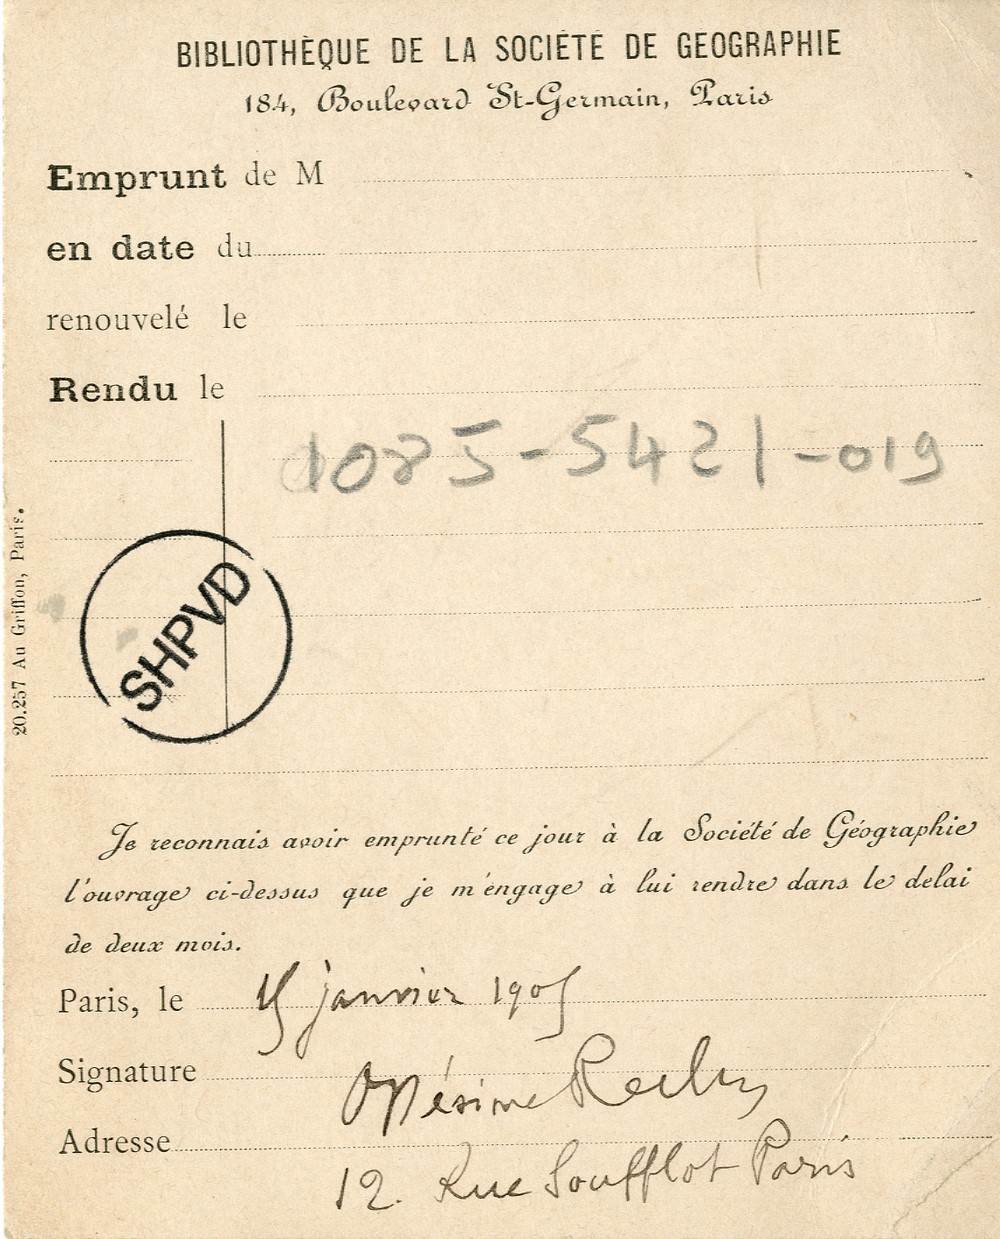 BIBLIOTHÈQUE DE LA SOCIÉTÉ DE GÉOGRAPHIE
184, Boulevard St-Germain, Paris
Emprunt de M
en date du
renouvelé le
Rendu le
1085-5421-019
SHPVD
20.257 Au Griffon, Paris.
Je reconnais avoir emprunté ce jour à la Société de Géographie
l'ouvrage ci-dessus que je m'engage à lui rendre dans le delai
de deux mois.
Paris, le 15 janvier 1905
Signature Onésime Reclus
Adresse
12. Rue Soufflot Paris